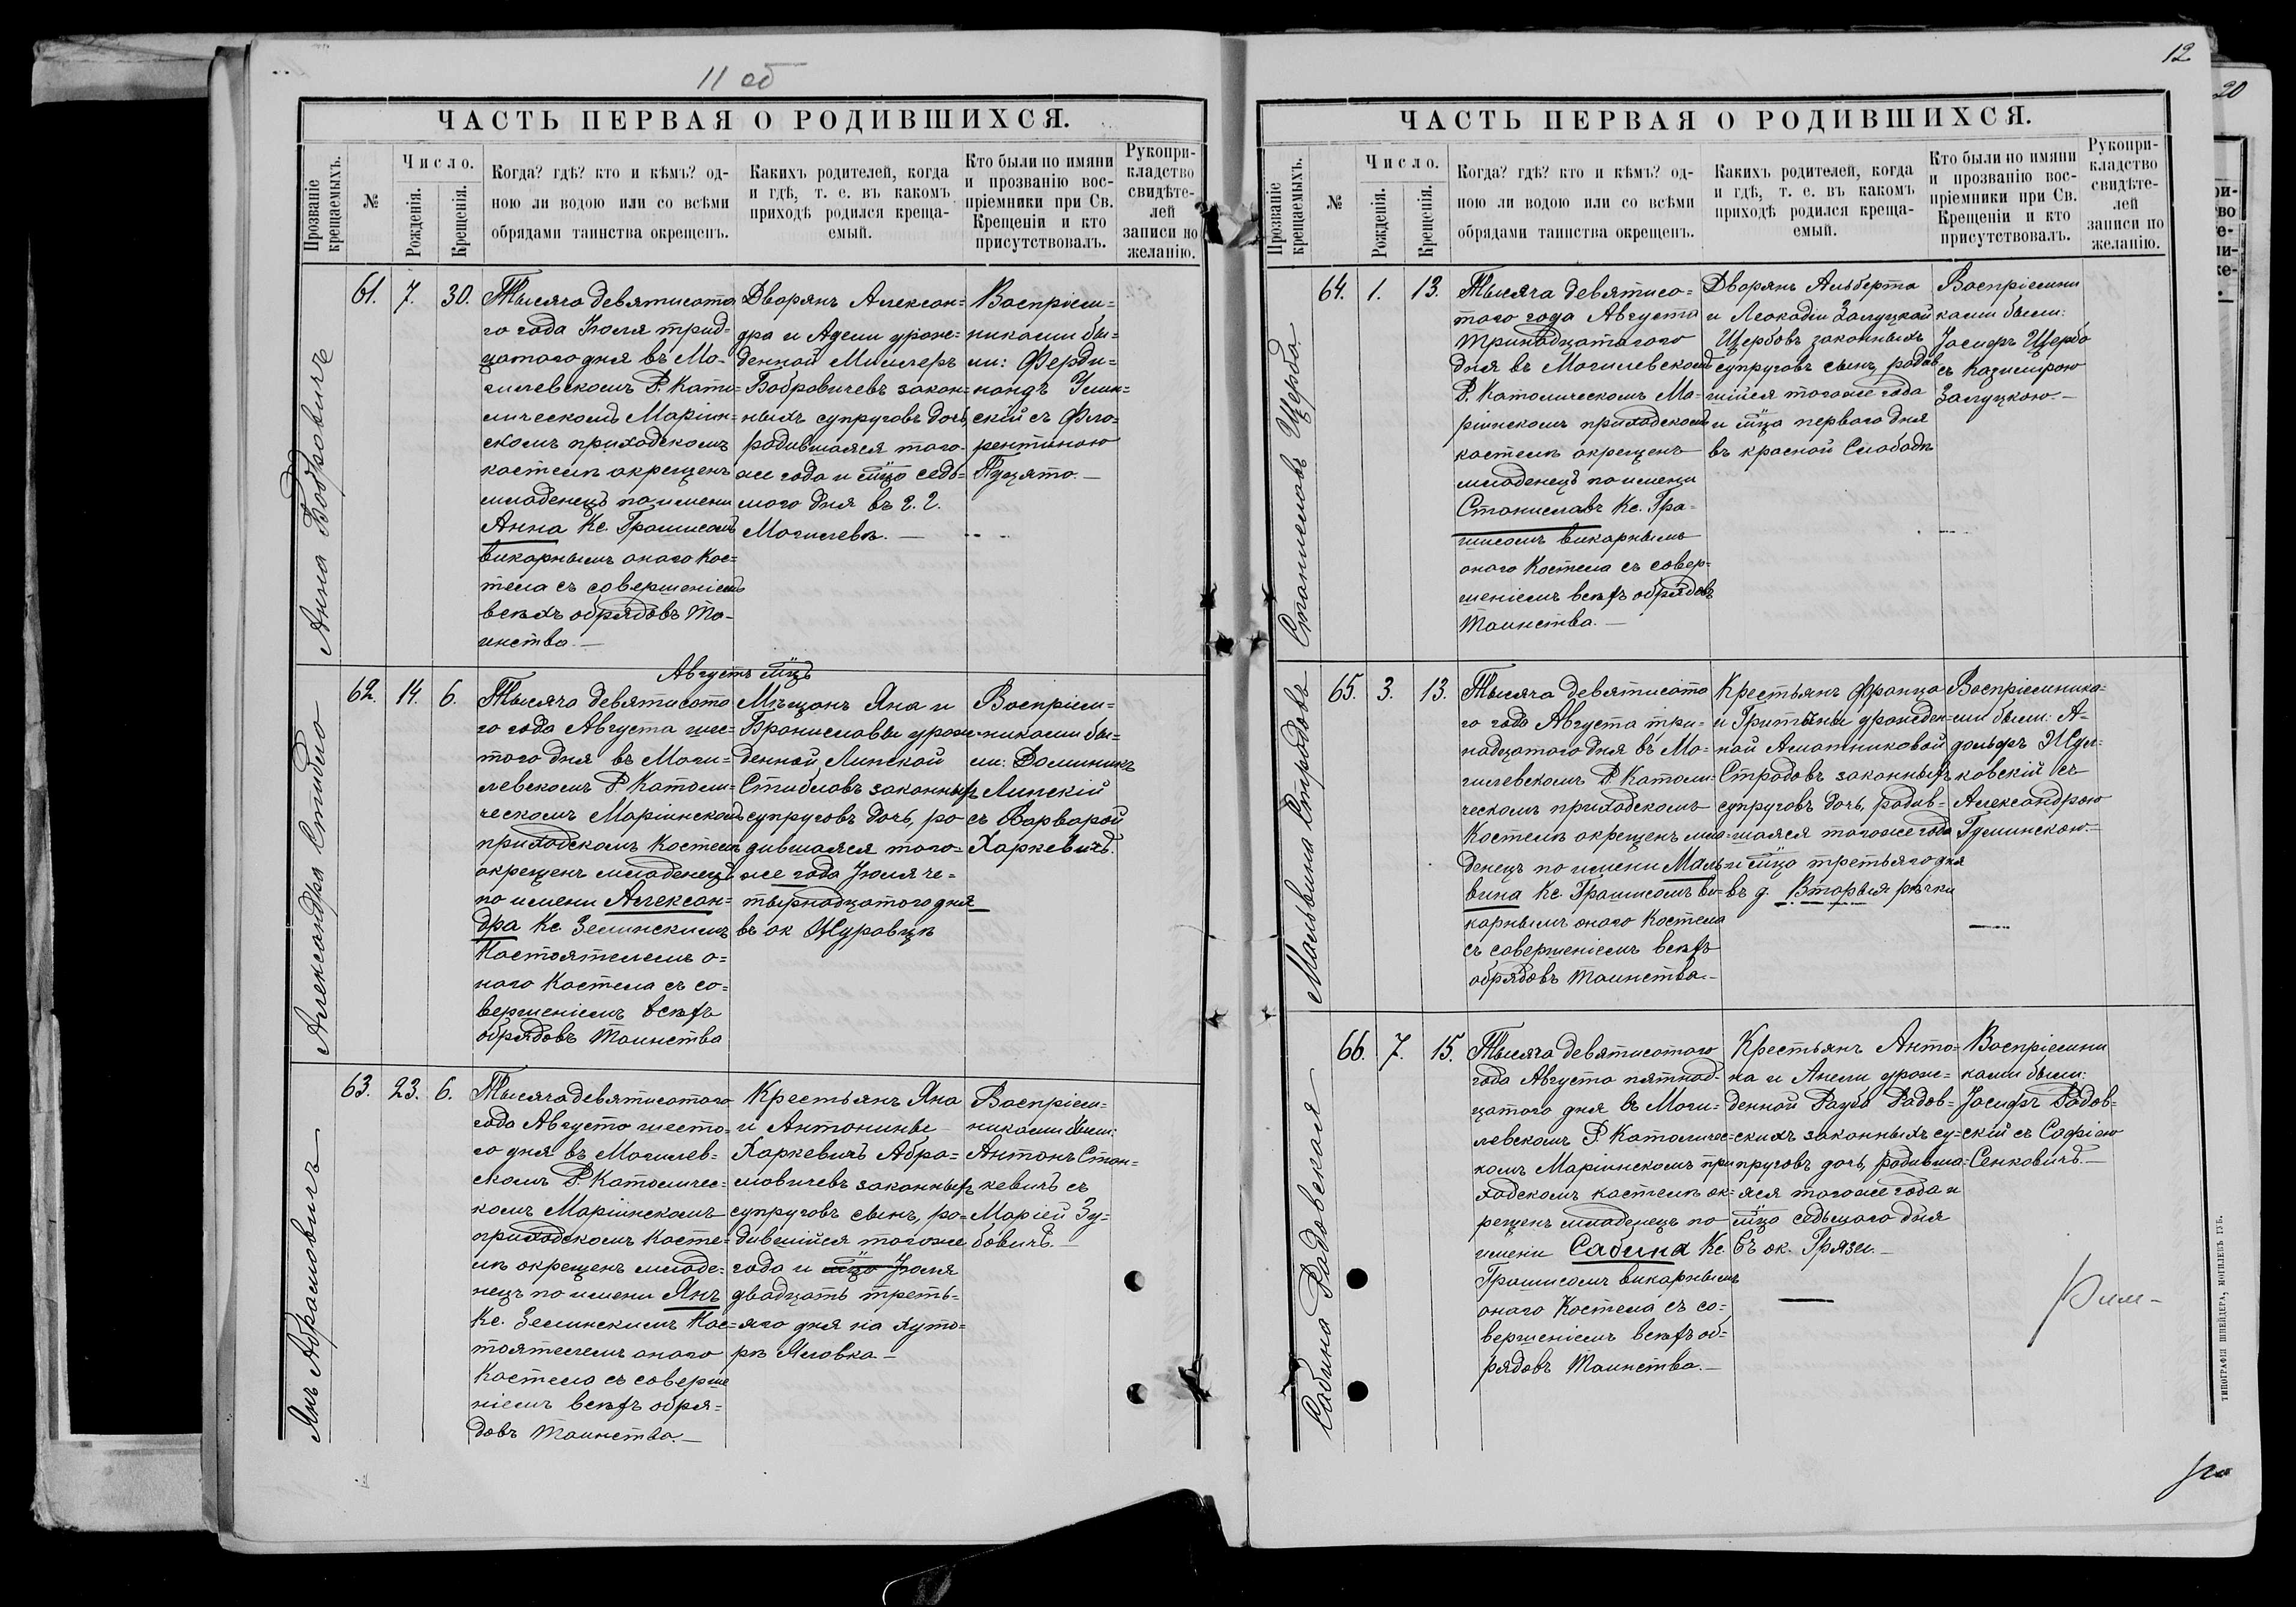 11 об
ЧАСТЬ ПЕРВАЯ О РОДИВШИХСЯ.
Прозваніе крещаемыхъ.
№
Число.
Рожденія.
Крещенія.
Когда? гдѣ? кто и кѣмъ? од-
ною ли водою или со всѣми
обрядами таинства окрещенъ.
Какихъ родителей, когда
и гдѣ, т. е. въ какомъ
приходѣ родился креща-
емый.
Кто были по имяни
и прозванію вос-
пріемники при Св.
Крещеніи и кто
присутствовалъ.
Рукопри-
кладство
свидѣте-
лей
записи по
желанію.
Анна Бобровичъ
61.
7.
30.
Тысяча девятисота
го года Іюля трид-
цатого дня въ Мо-
гилевскомъ Р. Като-
лическомъ Маріин-
скомъ приходскомъ
костелѣ окрещенъ
младенецъ по имени
Анна Кс. Грамисомъ
викарнымъ оного Кос=
тела съ совершеніемъ
всѣхъ обрядовъ Та-
инства.—
Дворянъ Алексан=
дра и Адели урож=
денной Миллеръ
Бобровичевъ закон=
ныхъ супруговъ дочь,
родившаяся того-
же года и мца седь-
мого дня въ г. г.
Могилевѣ.—
Воспріем-
никами бы=
ли: Ферди=
нандъ Улин-
скій съ Фло-
рентиною
Пуцято.—
Августъ мцъ
Александра Стибло
62.
14.
6.
Тысяча девятисота
го года Августа шес-
того дня въ Моги-
левскомъ Р. Католи=
ческомъ Маріинскомъ
приходскомъ Костелѣ
окрещенъ младенецъ
по имени Алексан=
дра Кс. Землнскимъ
Настоятелемъ о=
ного Костела съ со=
вершеніемъ всѣхъ
обрядовъ Таинства
Мѣщанъ Яна и
Брониславы урож-
денной Линской
Стибловъ законныхъ
супруговъ дочь, ро-
дившаяся того=
же года Іюля че=
тырнадцатого дня
въ ок Журовцѣ
Воспріем=
никами бы=
ли: Доминикъ
Линскій
съ Варварой
Харкевичъ.
Янъ Абрамовичъ
63.
23.
6.
Тысяча девятисотого
года Августа шесто-
го дня въ Могилев=
скомъ Р. Католичес=
комъ Маріинскомъ
приходскомъ Косте=
лѣ окрещенъ младе=
нецъ по имени Янъ
Кс. Землнскимъ Нас=
тоятелемъ оного
Костела съ соверше
ніемъ всѣхъ обря=
довъ Таинства.—
Крестьянъ Яна
и Антонины
Харкевичъ Абра=
мовичевъ законныхъ
супруговъ сынъ, ро-
дившійся тогоже
года и мца Іюля
двадцать треть-
яго дня на хуто=
рѣ Яловка—
Воспріем=
никами были:
Антонъ Стан=
кевичъ съ
Маріей Зу=
бовичъ.—
12
20
ЧАСТЬ ПЕРВАЯ О РОДИВШИХСЯ.
Прозваніе крещаемыхъ.
№
Число.
Рожденія.
Крещенія.
Когда? гдѣ? кто и кѣмъ? од-
ною ли водою или со всѣми
обрядами таинства окрещенъ.
Какихъ родителей, когда
и гдѣ, т. е. въ какомъ
приходѣ родился креща-
емый.
Кто были по имяни
и прозванію вос-
пріемники при Св.
Крещеніи и кто
присутствовалъ.
Рукопри-
кладство
свидѣте-
лей
записи по
желанію.
Станиславъ Щерба
64.
1.
13.
Тысяча девятисо=
того года Августа
тринадцатого
дня въ Могилевскомъ
Р. Католическомъ Ма-
ріинскомъ приходскомъ
костелѣ окрещенъ
младенецъ по имени
Станиславъ Кс. Гра=
мисомъ викарнымъ
оного Костела съ совер=
шеніемъ всѣхъ обрядовъ
Таинства.—
Дворянъ Альберта
и Леокадіи Залуцкой
Щербовъ законныхъ
супруговъ сынъ, родив
шійся тогоже года
и мца первого дня
въ красной Слободѣ
Воспріемни
ками были:
Іосифъ Щерба
съ Казимирою
Залуцкою.—
Мальвина Стродовъ
65.
3.
13.
Тысяча девятисота
го года Августа три-
надцатого дня въ Мо-
гилевскомъ Р. Католи=
ческомъ приходскомъ
Костелѣ окрещенъ мла-
денецъ по имени Маль-
вина Кс. Грамисомъ ви-
карнымъ оного Костела
съ совершеніемъ всѣхъ
обрядовъ Таинства.—
Крестьянъ Франца
и Гритыны урожден=
ной Аматниковой
Стродовъ законныхъ
супруговъ дочь, родив=
шаяся тогоже года
и мца третьяго дня
въ д. Вторыя рѣчки
Воспріемника=
ми были: А-
дольфъ Жул=
ковскій съ
Александрою
Гуминскою.—
Сабина Радовская
66.
7.
15.
Тысяча девятисотого
года Августа пятнад-
цатого дня въ Моги-
левскомъ Р. Католичес-
комъ Маріинскомъ при
ходскомъ костелѣ ок-
рещенъ младенецъ по
имени Сабина Кс.
Грамисомъ викарнымъ
оного Костела съ со=
вершеніемъ всѣхъ об=
рядовъ Таинства.—
Крестьянъ Анто=
на и Анели урож=
денной Раубо Радов=
скихъ законныхъ су-
пруговъ дочь, родивша-
яся тогоже года и
мца седьмого дня
въ ок. Грязи.—
Воспріемни
ками были:
Іосифъ Радов=
скій съ Софіею
Сенковичъ.—
ТИПОГРАФІЯ ШНЕЙДЕРА, МОГИЛЕВЪ ГУБ.